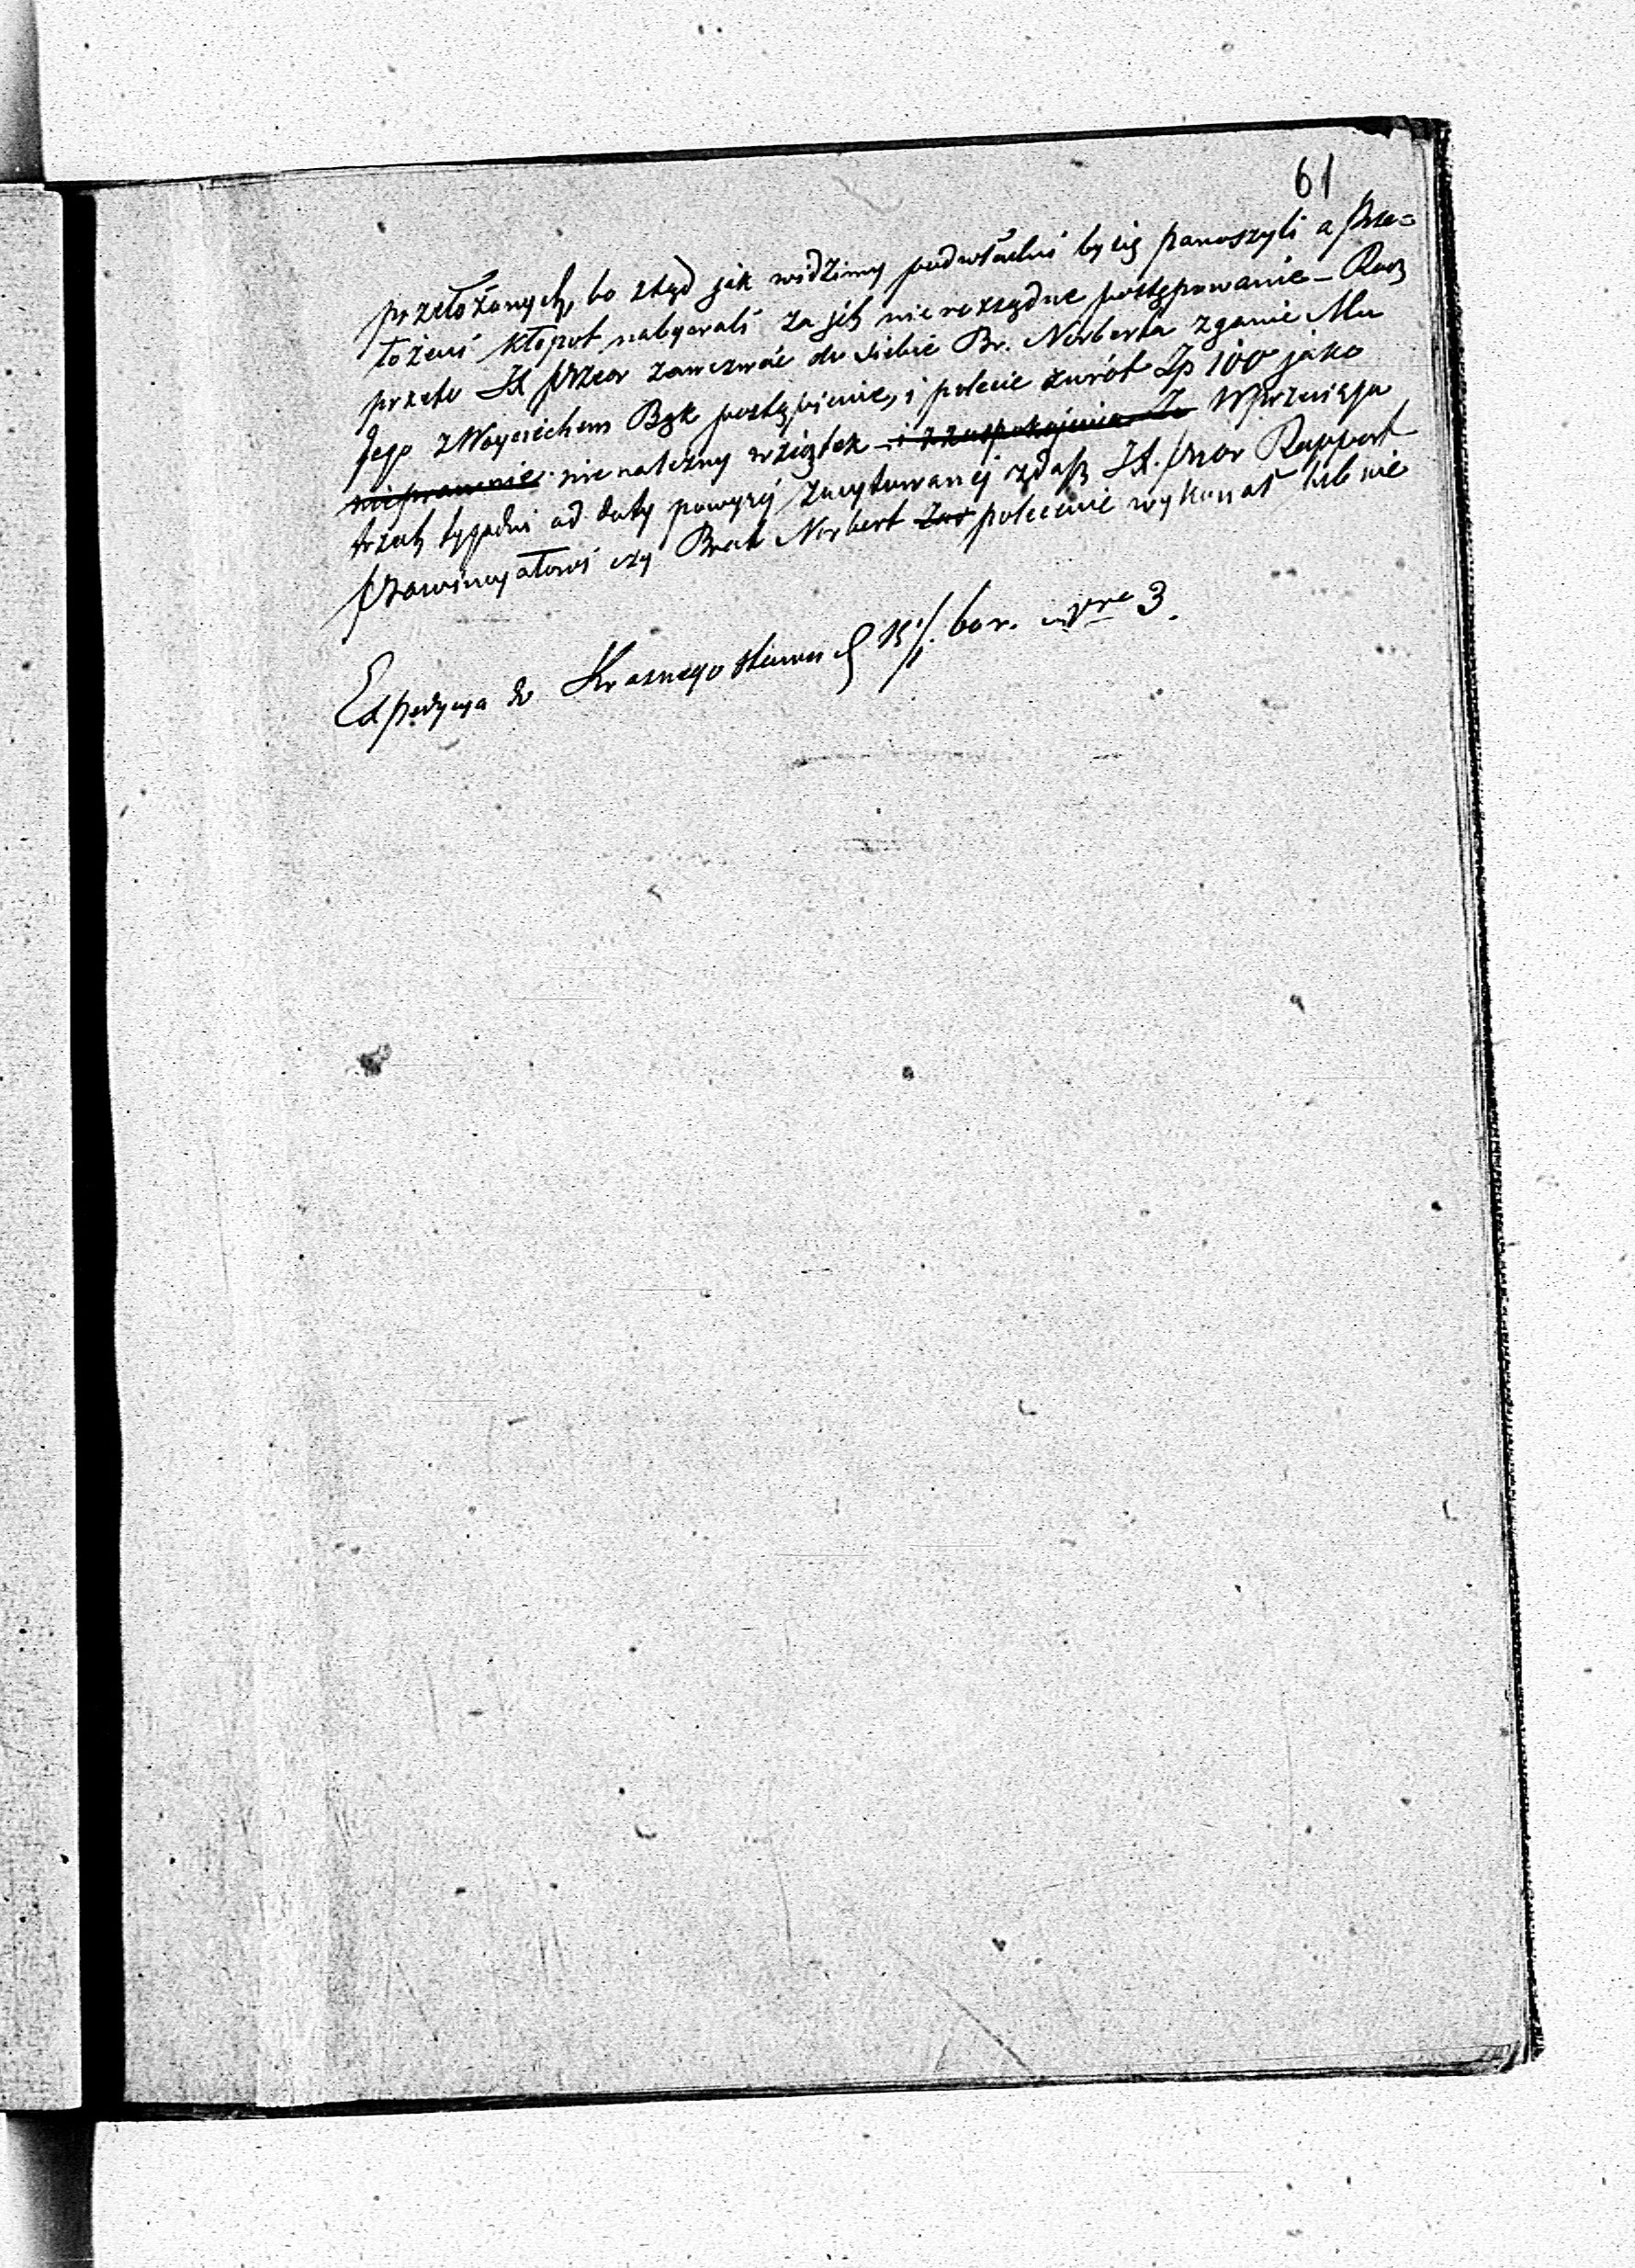 61
przełożonych, bo ztąd jak widzimy podwładni by się panoszyli a Prze=
łożeni kłopot nabywali za jch nierozsądne postępowanie – Racz
przeto JX Przeor zawezwać do siebie Br. Norberta zganić Mu
Jego z Wojciechem Bąk postąpienie, i polecić zwrót Zp 100 jako
nieprawnie nienależny wziątek – i zzaspokojenia Z W przeciągu
trzech tygodni od daty powyżej zacytowanej zdasz JX. Przeor Rapport
Prowincyałowi czy Brat Norbert polecenie wykonał lub nie
Expedycya do Krasnegostawu 15/ bor. 3.